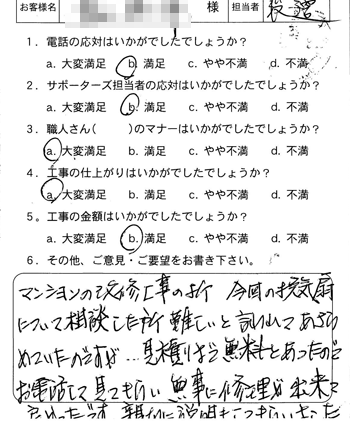 お客様名 様 担当者
1．電話の応対はいかがでしたでしょうか？
a. 大変満足 b. 満足 c. やや不満 d. 不満
2．サポーターズ担当者の応対はいかがでしたでしょうか？
a. 大変満足 b. 満足 c. やや不満 d. 不満
3．職人さん( )のマナーはいかがでしたでしょうか？
a. 大変満足 b. 満足 c. やや不満 d. 不満
4．工事の仕上がりはいかがでしたでしょうか？
a. 大変満足 b. 満足 c. やや不満 d. 不満
5。工事の金額はいかがでしたでしょうか？
a. 大変満足 b. 満足 c. やや不満 d. 不満
6．その他、ご意見・ご要望をお書き下さい。
マンションの改修工事の折 今回の換気扇
について相談した所 難しいと言われてあきら
めていたのですが… 見積りは無料とあったので
お電話して見てもらい 無事に修理が出来て